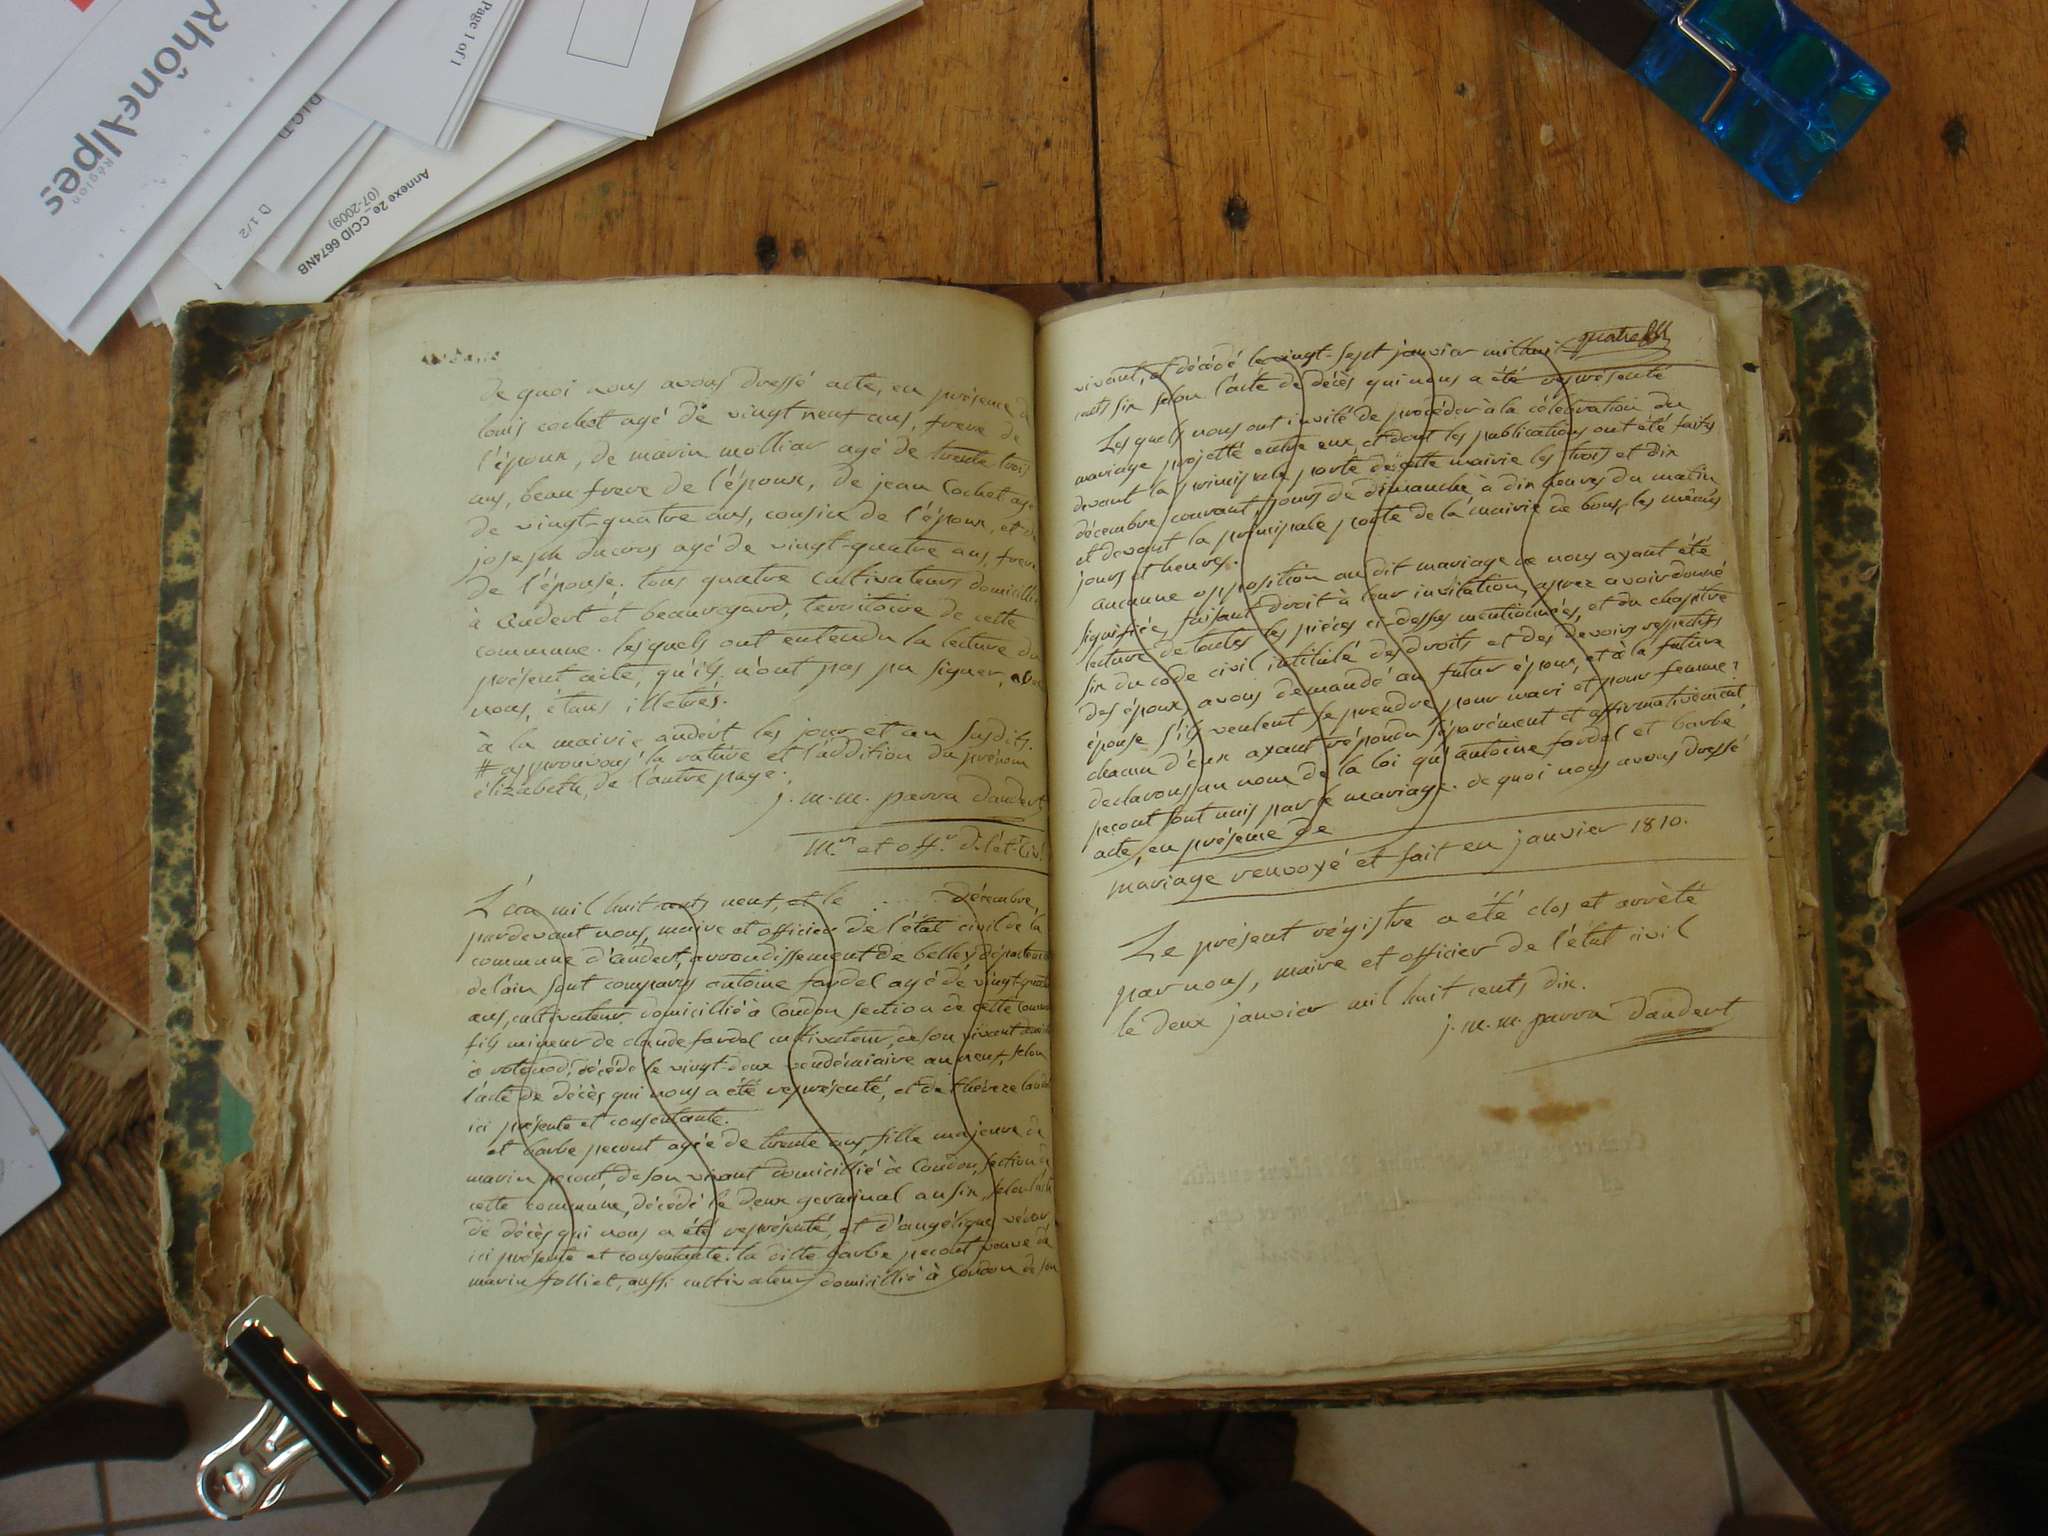 Rhône-Alpes
Région
Page 1 of 1
D 1/2
Annexe 2e_CCID 6674NB
(07-2009)
de quoi nous avons dressé acte, en présence de
louis cochet agé de vingt neuf ans, frere de
l'époux, de marin molliar agé de trente trois
ans, beau frere de l'époux, de jean Cochet agé
de vingt-quatre ans, cousin de l'époux, et de
joseph ducros agé de vingt-quatre ans, frere
de l'épouse. tous quatre cultivateurs domiciliés
à Andert et beauregard, territoire de cette
commune. lesquels ont entendu la lecture du
présent acte, qu'ils n'ont pas pu signer, avec
nous, étans illetrés.
à la mairie andert les jour et an susdits.
# approuvons la rature et l'addition du prénom
élizabeth, de l'autre page.
j. m. m. parra Dandert
m.re et off.r de l'ét. civ.
L'an mil huit cents neuf, et le ...... décembre,
pardevant nous, maire et officier de l'état civil de la
commune d'andert, arrondissement de belley département
de l'ain, sont comparus antoine fardel agé de vingt-quatre
ans, cultivateur, domicillié à Condon section de cette commune
fils mineur de claude fardel cultivateur, de son vivant
à décédé le vingt-deux vendémiaire an neuf, selon
l'acte de décès qui nous a été représenté, et de thérèze
ici présente et consentante.
et barbe pecout agée de trente ans, fille majeure de
marin pecout, de son vivant domicillié à Condon, section de
cette commune, décédé le deux germinal an six, selon l'acte
de décès qui nous a été représenté, et d'angélique
ici présente et consentante. la dite barbe pecout veuve de
marin folliet, aussi cultivateur domicillié à Condon de son
vivant, et décédé le vingt-sept janvier mil huit quatre
cents six selon l'acte de décès qui nous a été représenté
Lesquels nous ont invité de procéder à la célébration du
mariage projetté entre eux et dont les publications ont été faites
devant la principale porte de cette mairie les trois et dix
décembre courant, jours de dimanche à dix heures du matin
et devant la principale porte de la mairie de bons, les mêmes
jours et heures.
aucunne opposition au dit mariage ne nous ayant été
signifiée, faisant droit à leur invitation, aprez avoir donné
lecture de toutes les pièces ci-dessus mentionnées, et du chapitre
six du code civil intitulé des droits et des devoirs respectifs
des époux, avons demandé au futur époux, et à la future
épouse s'ils veulent se prendre pour mari et pour femme:
chacun d'eux ayant répondu séparément et affirmativement,
declarons au nom de la loi qu'antoine fardel et barbe
pecout sont unis par le mariage. de quoi nous avons dressé
acte, en présence de
mariage renvoyé et fait en janvier 1810.
Le présent régistre a été clos et arrêté
par nous, maire et officier de l'état civil
le deux janvier mil huit cents dix.
j. m. m. parra Dandert